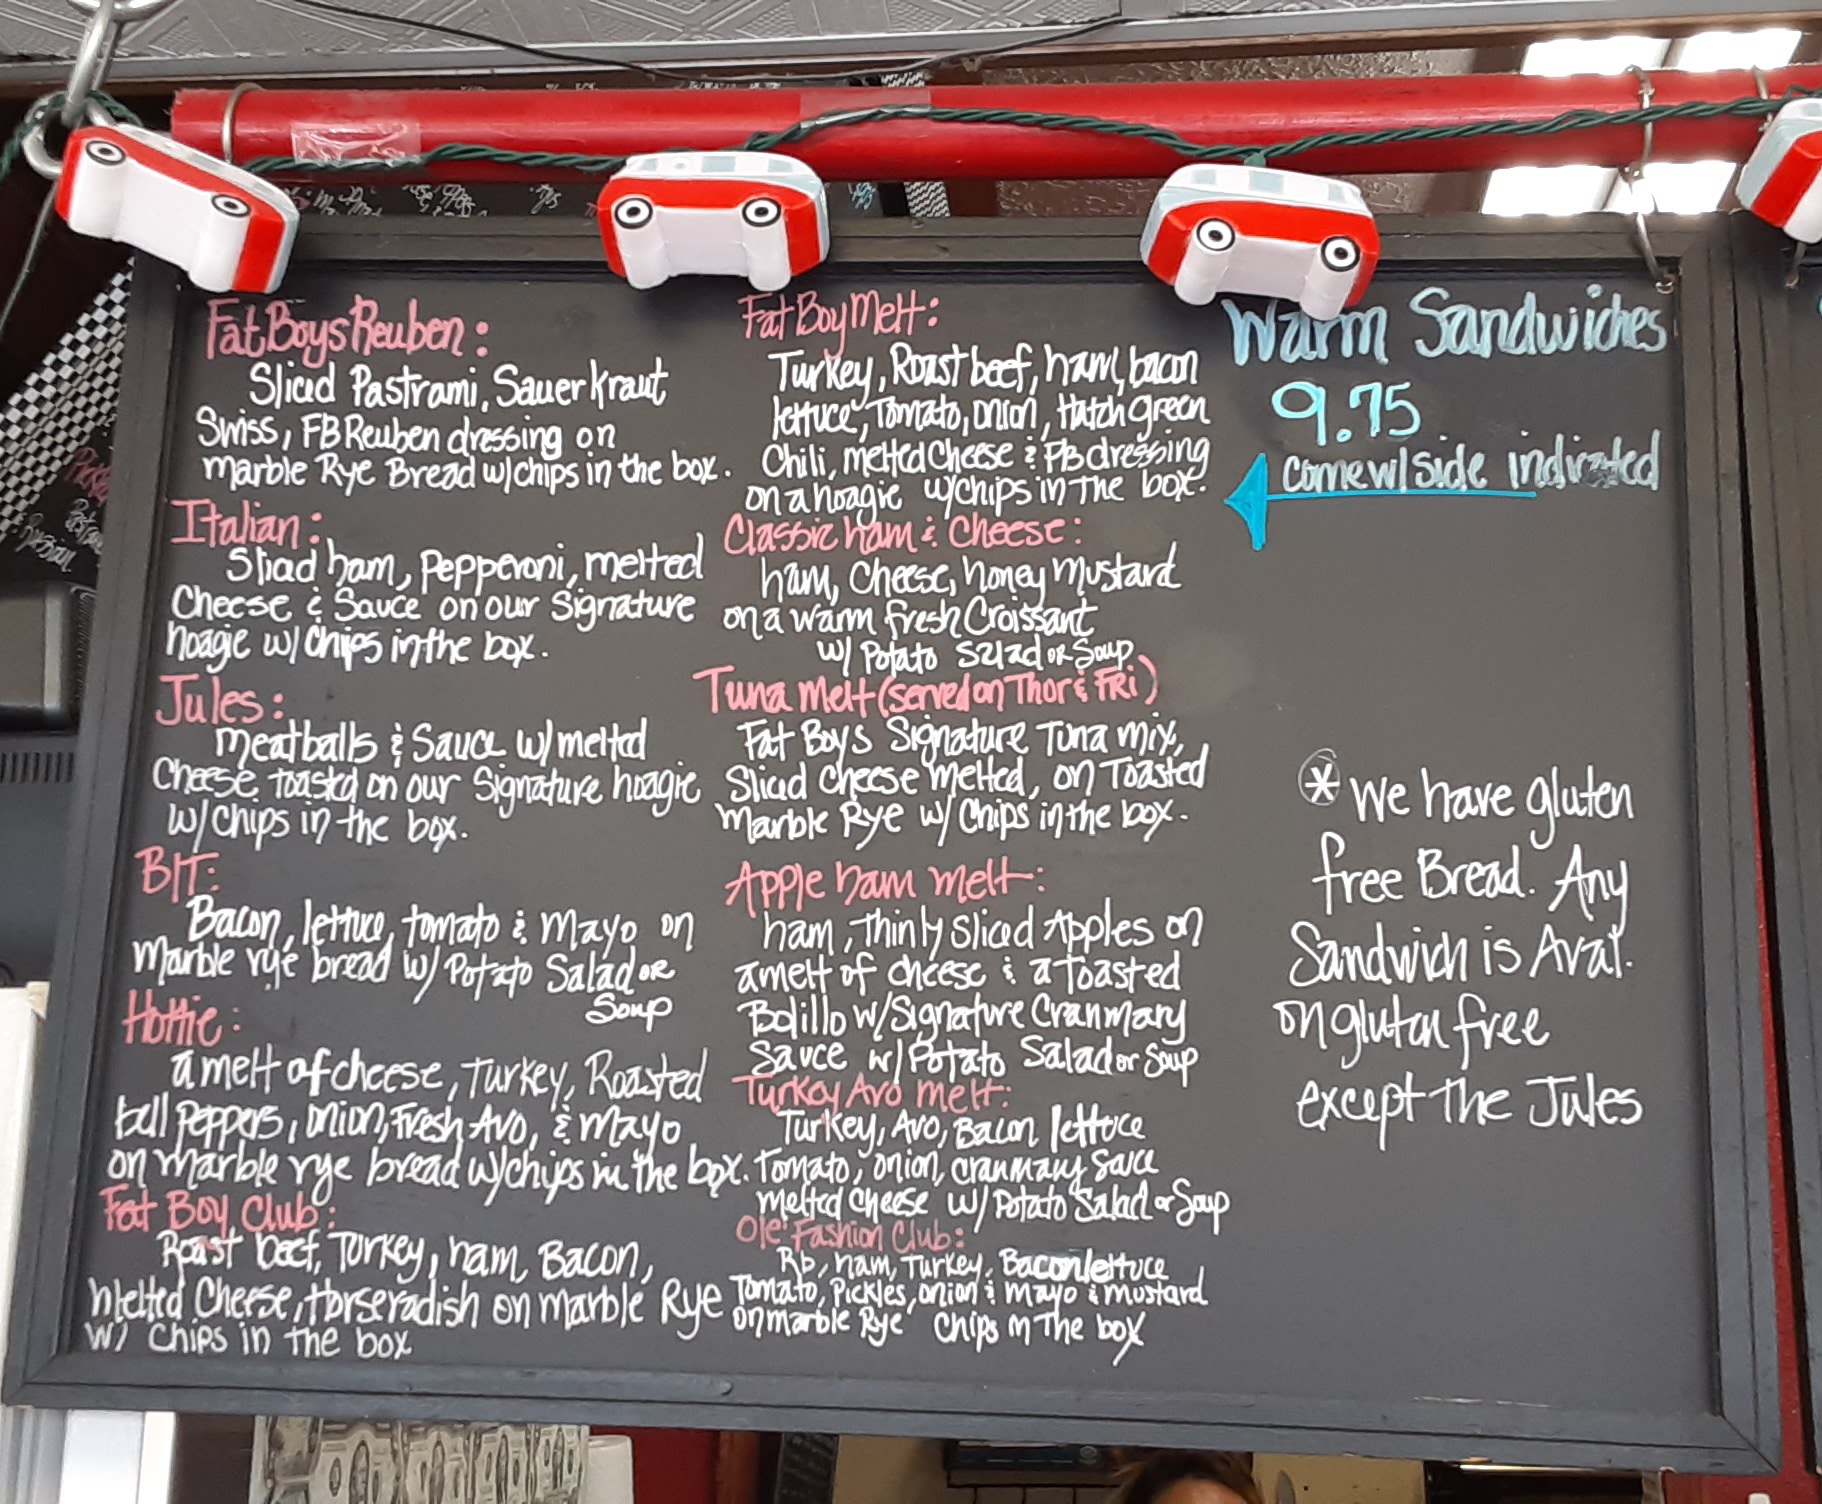 Fat Boys Reuben:
Sliced Pastrami, Sauerkraut
Swiss, FB Reuben dressing on
marble Rye Bread w/chips in the box.
Italian:
Sliced ham, Pepperoni, melted
Cheese & Sauce on our Signature
hoagie w/ Chips in the box.
Jules:
Meatballs & Sauce w/ melted
Cheese toasted on our Signature hoagie
w/ Chips in the box.
BLT:
Bacon, lettuce, tomato & Mayo on
Marble rye bread w/ Potato Salad or
Soup
Hottie:
a melt of cheese, Turkey, Roasted
bell Peppers, onion, Fresh Avo, & Mayo
on marble rye bread w/chips in the box.
Fat Boy Club:
Roast beef, Turkey, ham, Bacon,
Melted Cheese, Horseradish on marble Rye
w/ Chips in the box
Fat Boy Melt:
Turkey, Roast beef, ham, bacon
lettuce, Tomato, onion, Hatch green
Chili, melted Cheese & FB dressing
on a hoagie w/chips in the box.
Classic ham & Cheese:
ham, Cheese, honey Mustard
on a warm fresh Croissant
w/ Potato Salad or Soup
Tuna Melt (served on Thur & FRi)
Fat Boys Signature Tuna mix,
Sliced cheese melted, on Toasted
Marble Rye w/ Chips in the box.
Apple ham melt:
ham, Thinly sliced Apples on
a melt of cheese & a toasted
Bolillo w/ Signature Cranmary
Sauce w/ Potato Salad or Soup
Turkey Avo melt:
Turkey, Avo, Bacon lettuce
Tomato, onion, cranmary sauce
melted cheese w/ Potato Salad or Soup
Ole' Fashion Club:
Rb, ham, Turkey, Bacon lettuce
Tomato, Pickles, onion & mayo & mustard
on marble Rye chips in the box
Warm Sandwiches
9.75
come w/ side indicated
* We have gluten
free Bread. Any
Sandwich is Avai.
on gluten free
except the Jules